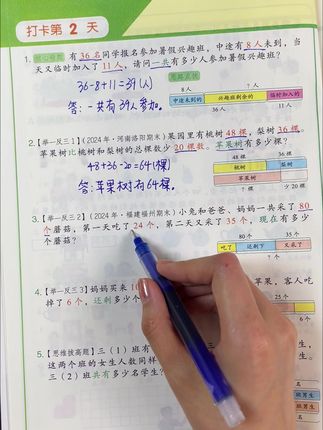 打卡第 2 天
1.【核心母题】有 36 名同学报名参加暑假兴趣班,中途有 8 人未到,当
天又临时加入了 11 人,请问一共有多少人参加暑假兴趣班?
36-8+11=39(人)
答:一共有39人参加。
思路点拨
8人 36名 11人
中途未到的 兴趣班剩余的 临时加入的
2.【举一反三1】(2024年·河南洛阳期末)果园里有桃树 48 棵,梨树 36 棵。
苹果树比桃树和梨树的总棵数少 20 棵。苹果树有多少棵?
48+36-20=64(棵)
答:苹果树有64棵。
48棵 36棵
桃树 梨树
苹果树
?棵 20棵
3.【举一反三2】(2024年·福建福州期末)小兔和爸爸、妈妈一共采了 80
个蘑菇,第一天吃了 24 个,第二天又采了 35 个,现在有多少
个蘑菇?
80个 35个
吃了 还剩下 又采了
24个 ?个
4.【举一反三3】妈妈买来 10 苹果,客人吃
掉了 6 个,还剩多少个
5.【思维拔高题】三(1)班有 生。
这两个班的女生人数同样 生,
三(2)班共有多少名学生?
班男生
班男生